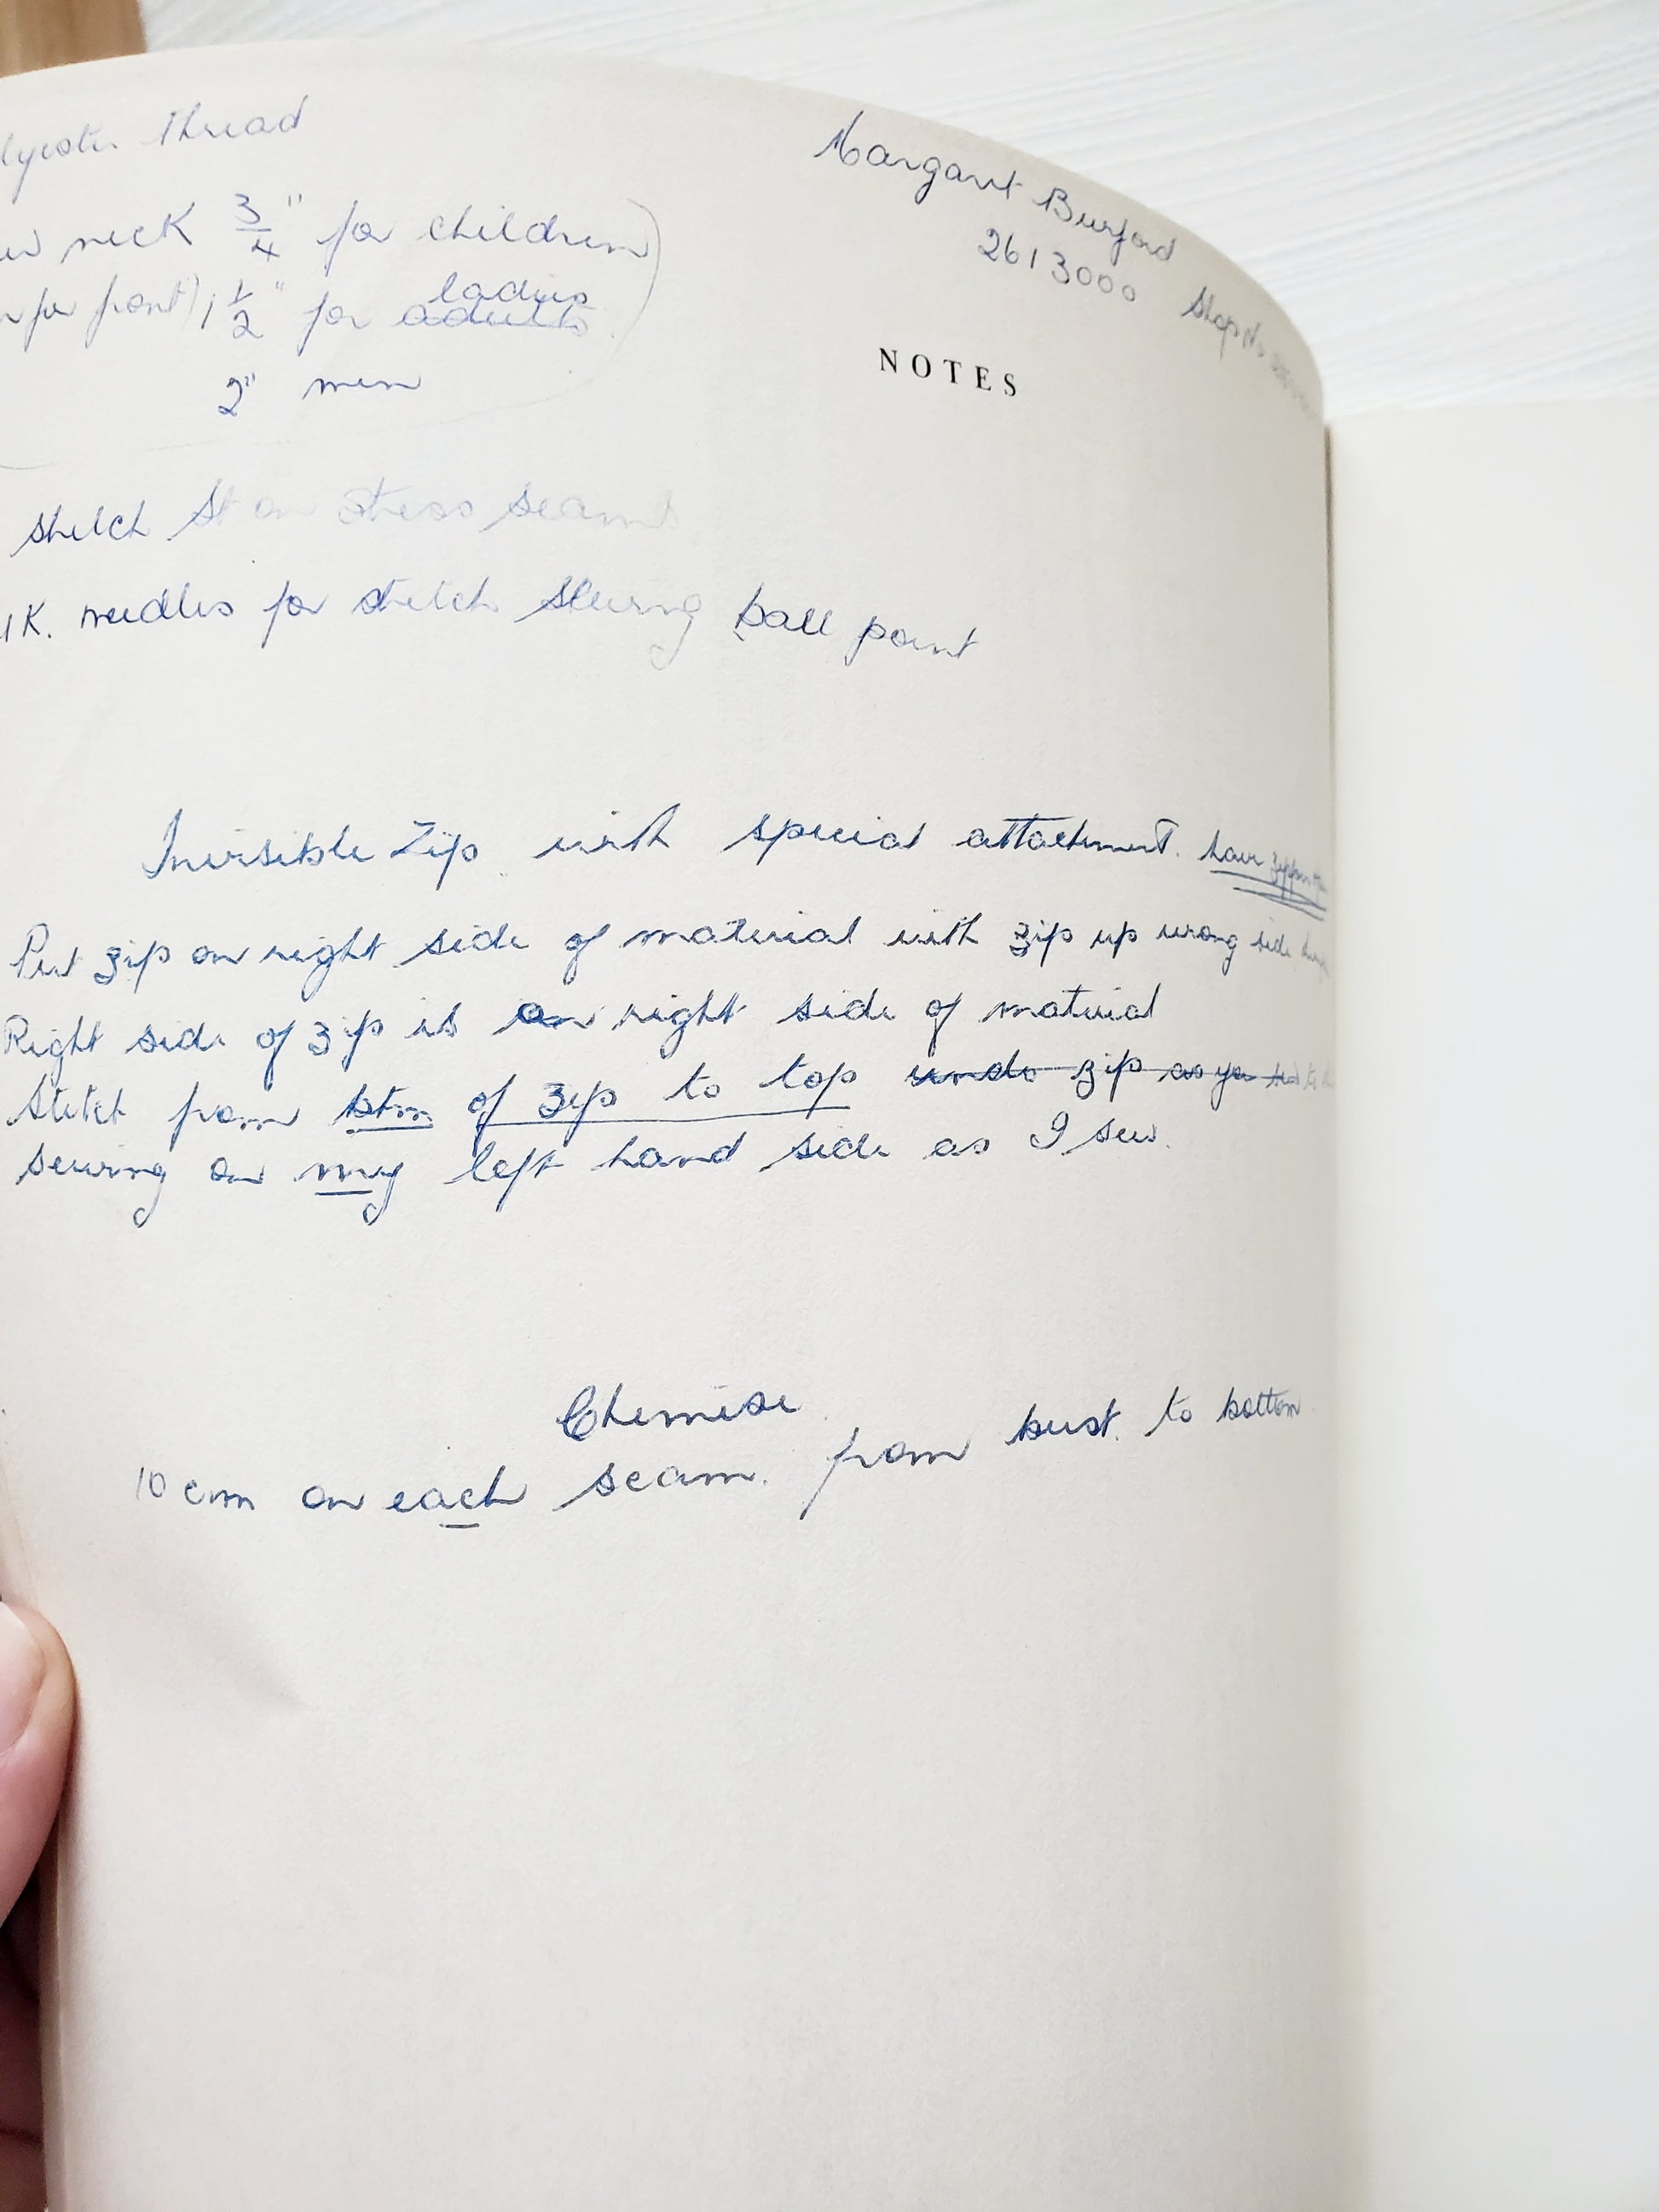 Margaret Burford
2613000
NOTES
Thread
neck 3/4" for children)
front) 1 1/2" for adults ladies
2" men
stretch St on stress seams
needles for stretch sewing ball point
Invisible Zip with special attachment. have
Put zip on right side of material with zip up wrong side
Right side of zip is on right side of material
Stitch from btm of zip to top undo zip as you
sewing on my left hand side as I sew.
Chemise
10 cm on each seam. from bust. to bottom